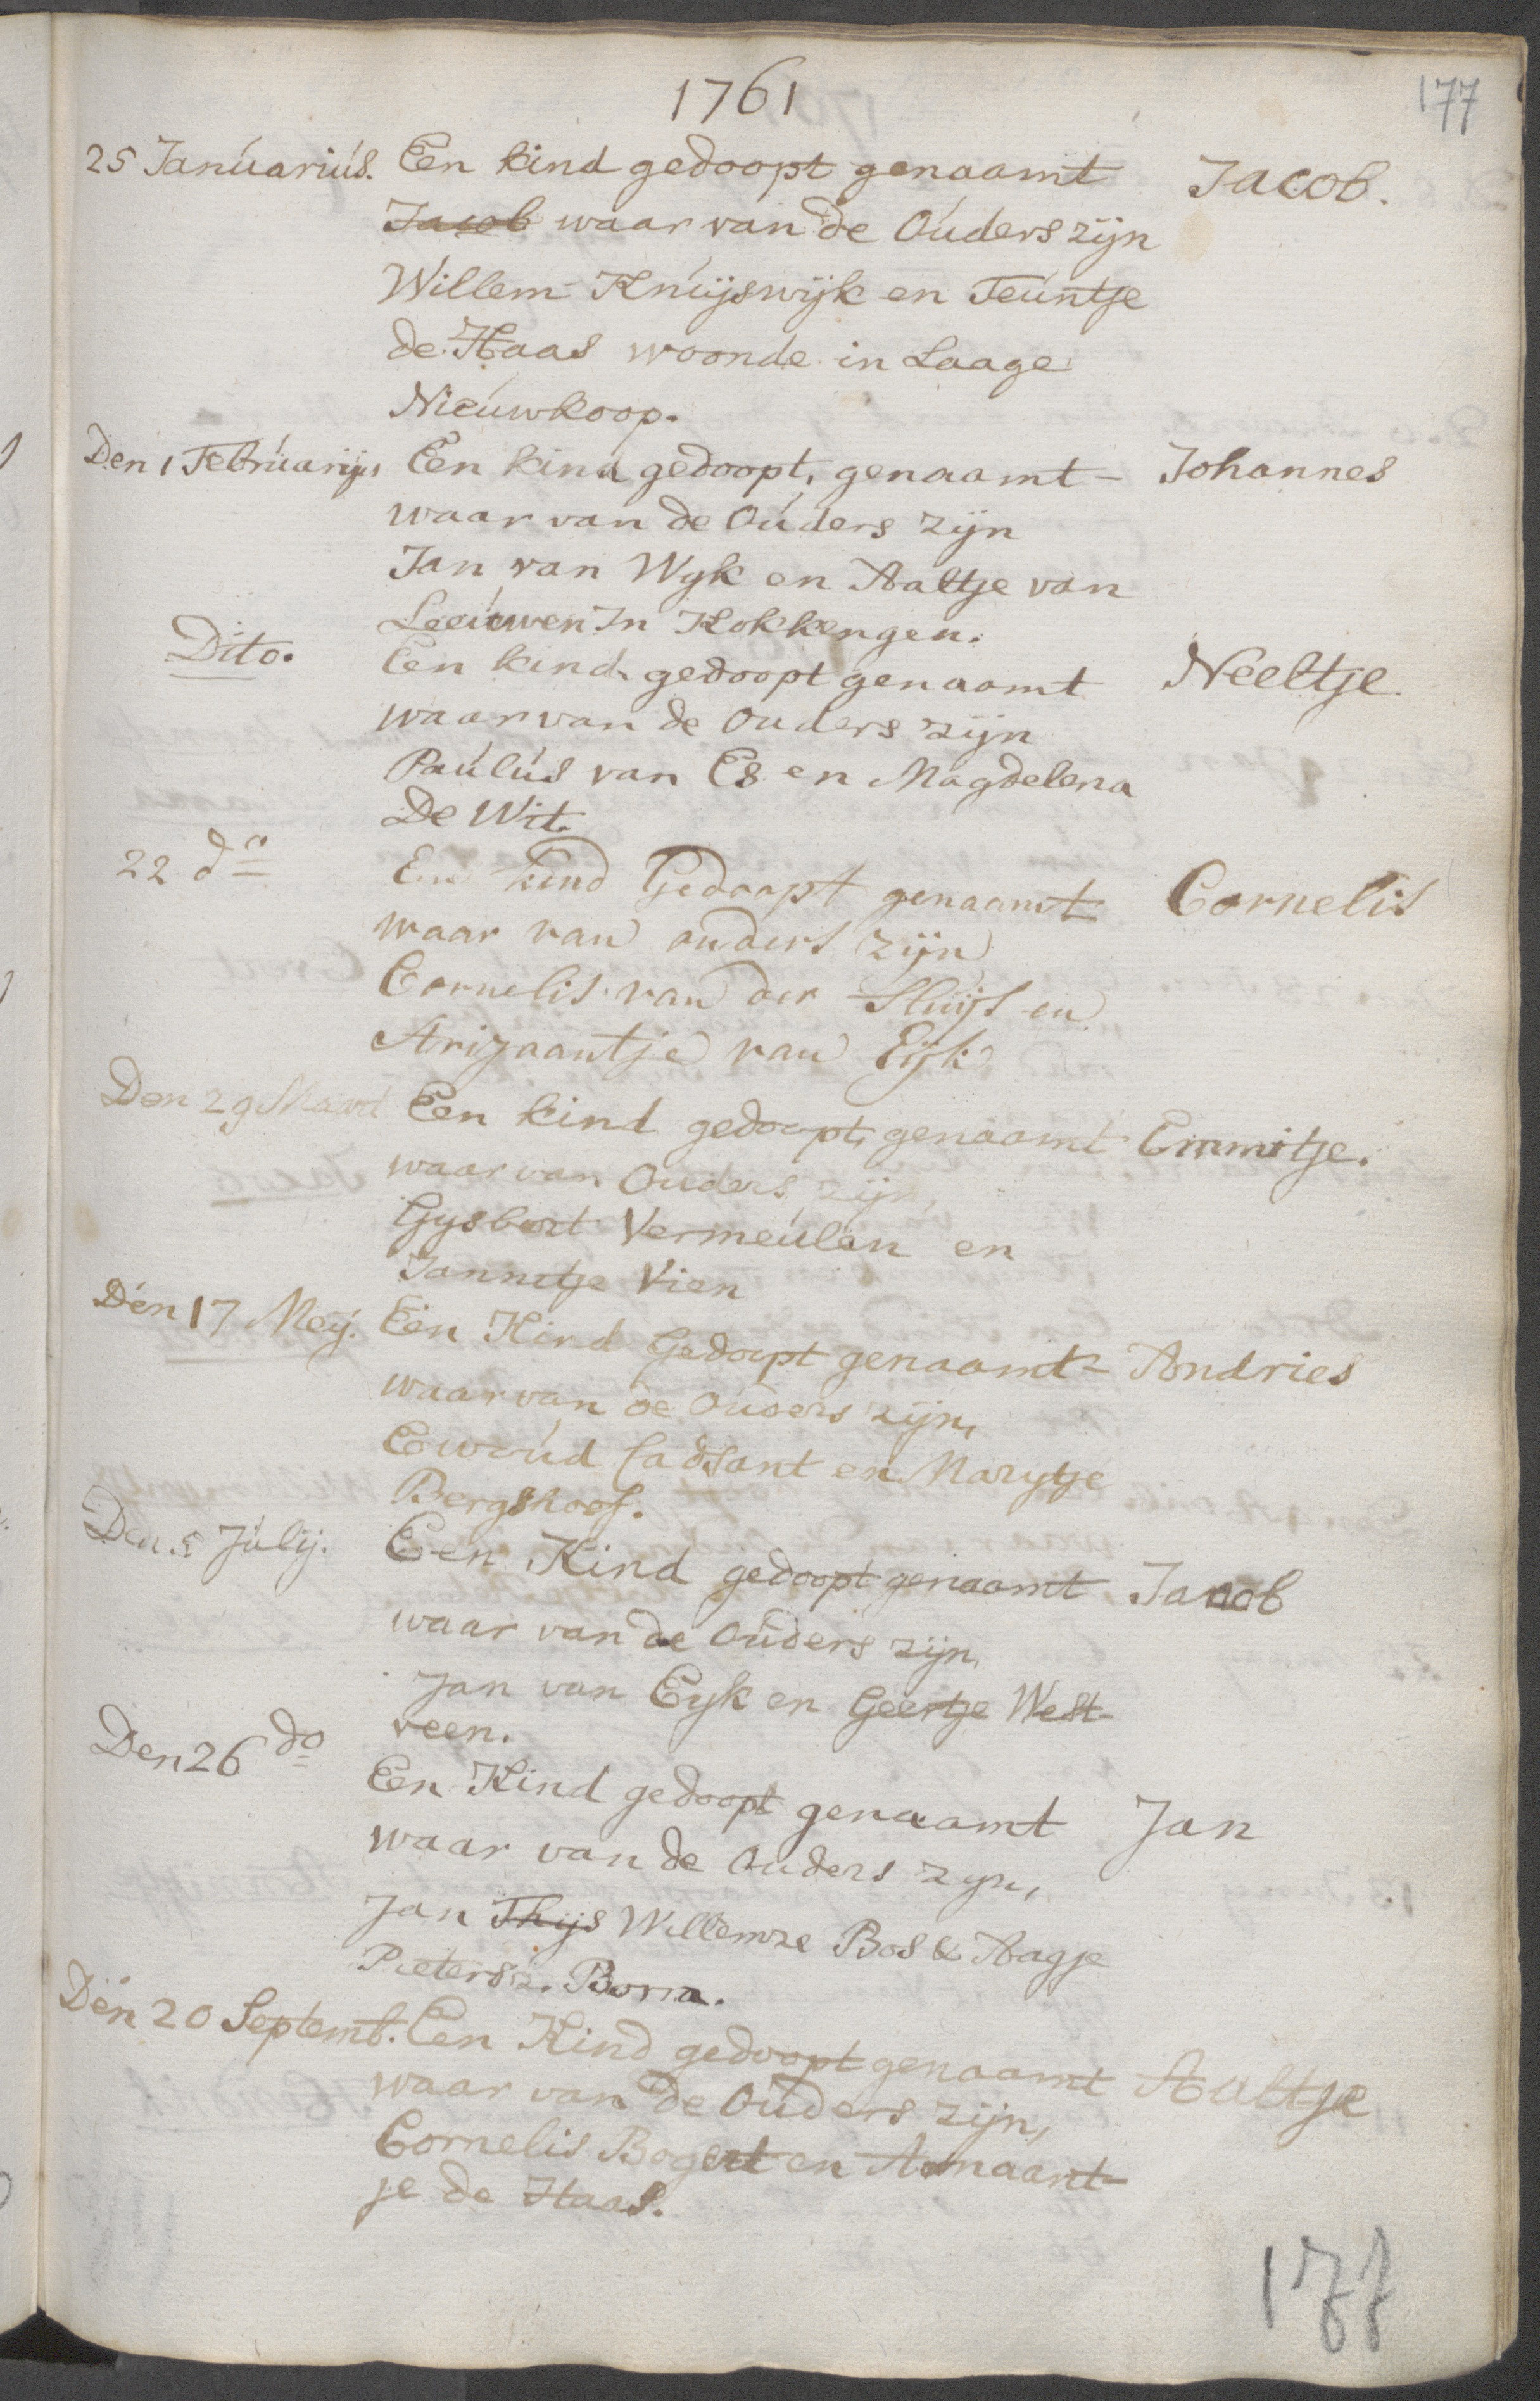 1761
177
25 Januarius. Een kind gedoopt genaamt Jacob.
Jacob waar van de Ouders zijn
Willem Knuijswijk en Teuntje
de Haas woonde in Laage
Nieuwkoop.
Den 1 Februarijs Een kind gedoopt, genaamt - Johannes
waar van de Ouders zijn
Jan van Wyk en Aaltje van
Leeuwen In Kokkengen.
Dito. Een kind gedoopt genaamt Neeltje.
waar van de Ouders zijn
Paulus van Es en Magdelena
De Wit.
22 do Een kind Gedoopt genaamt Cornelis
waar van ouders zijn
Cornelis van der Sluijs en
Arijaantje van Eijk
Den 29 Maart Een kind gedoopt, genaamt Emmitje.
waar van Ouders zijn,
Gysbert Vermeulen en
Jannetje Vien
Den 17 Meij. Een Kind Gedoopt genaamt - Andries
waar van de Ouders zijn,
Ewoud Cadsant en Marytje
Bergshoef.
Den 5 Julij. Een Kind gedoopt genaamt Jacob
waar van de Ouders zijn,
Jan van Eyk en Geertje West-
veen.
Den 26 do Een Kind gedoopt genaamt Jan
waar van de Ouders zyn,
Jan Thijs Willemze Bos & Aagje
Pietersz. Bom.
Den 20 Septemb. Een Kind gedoopt genaamt Aaltje
waar van de Ouders zijn,
Cornelis Bogert en Adriaant-
je de Haas.
177